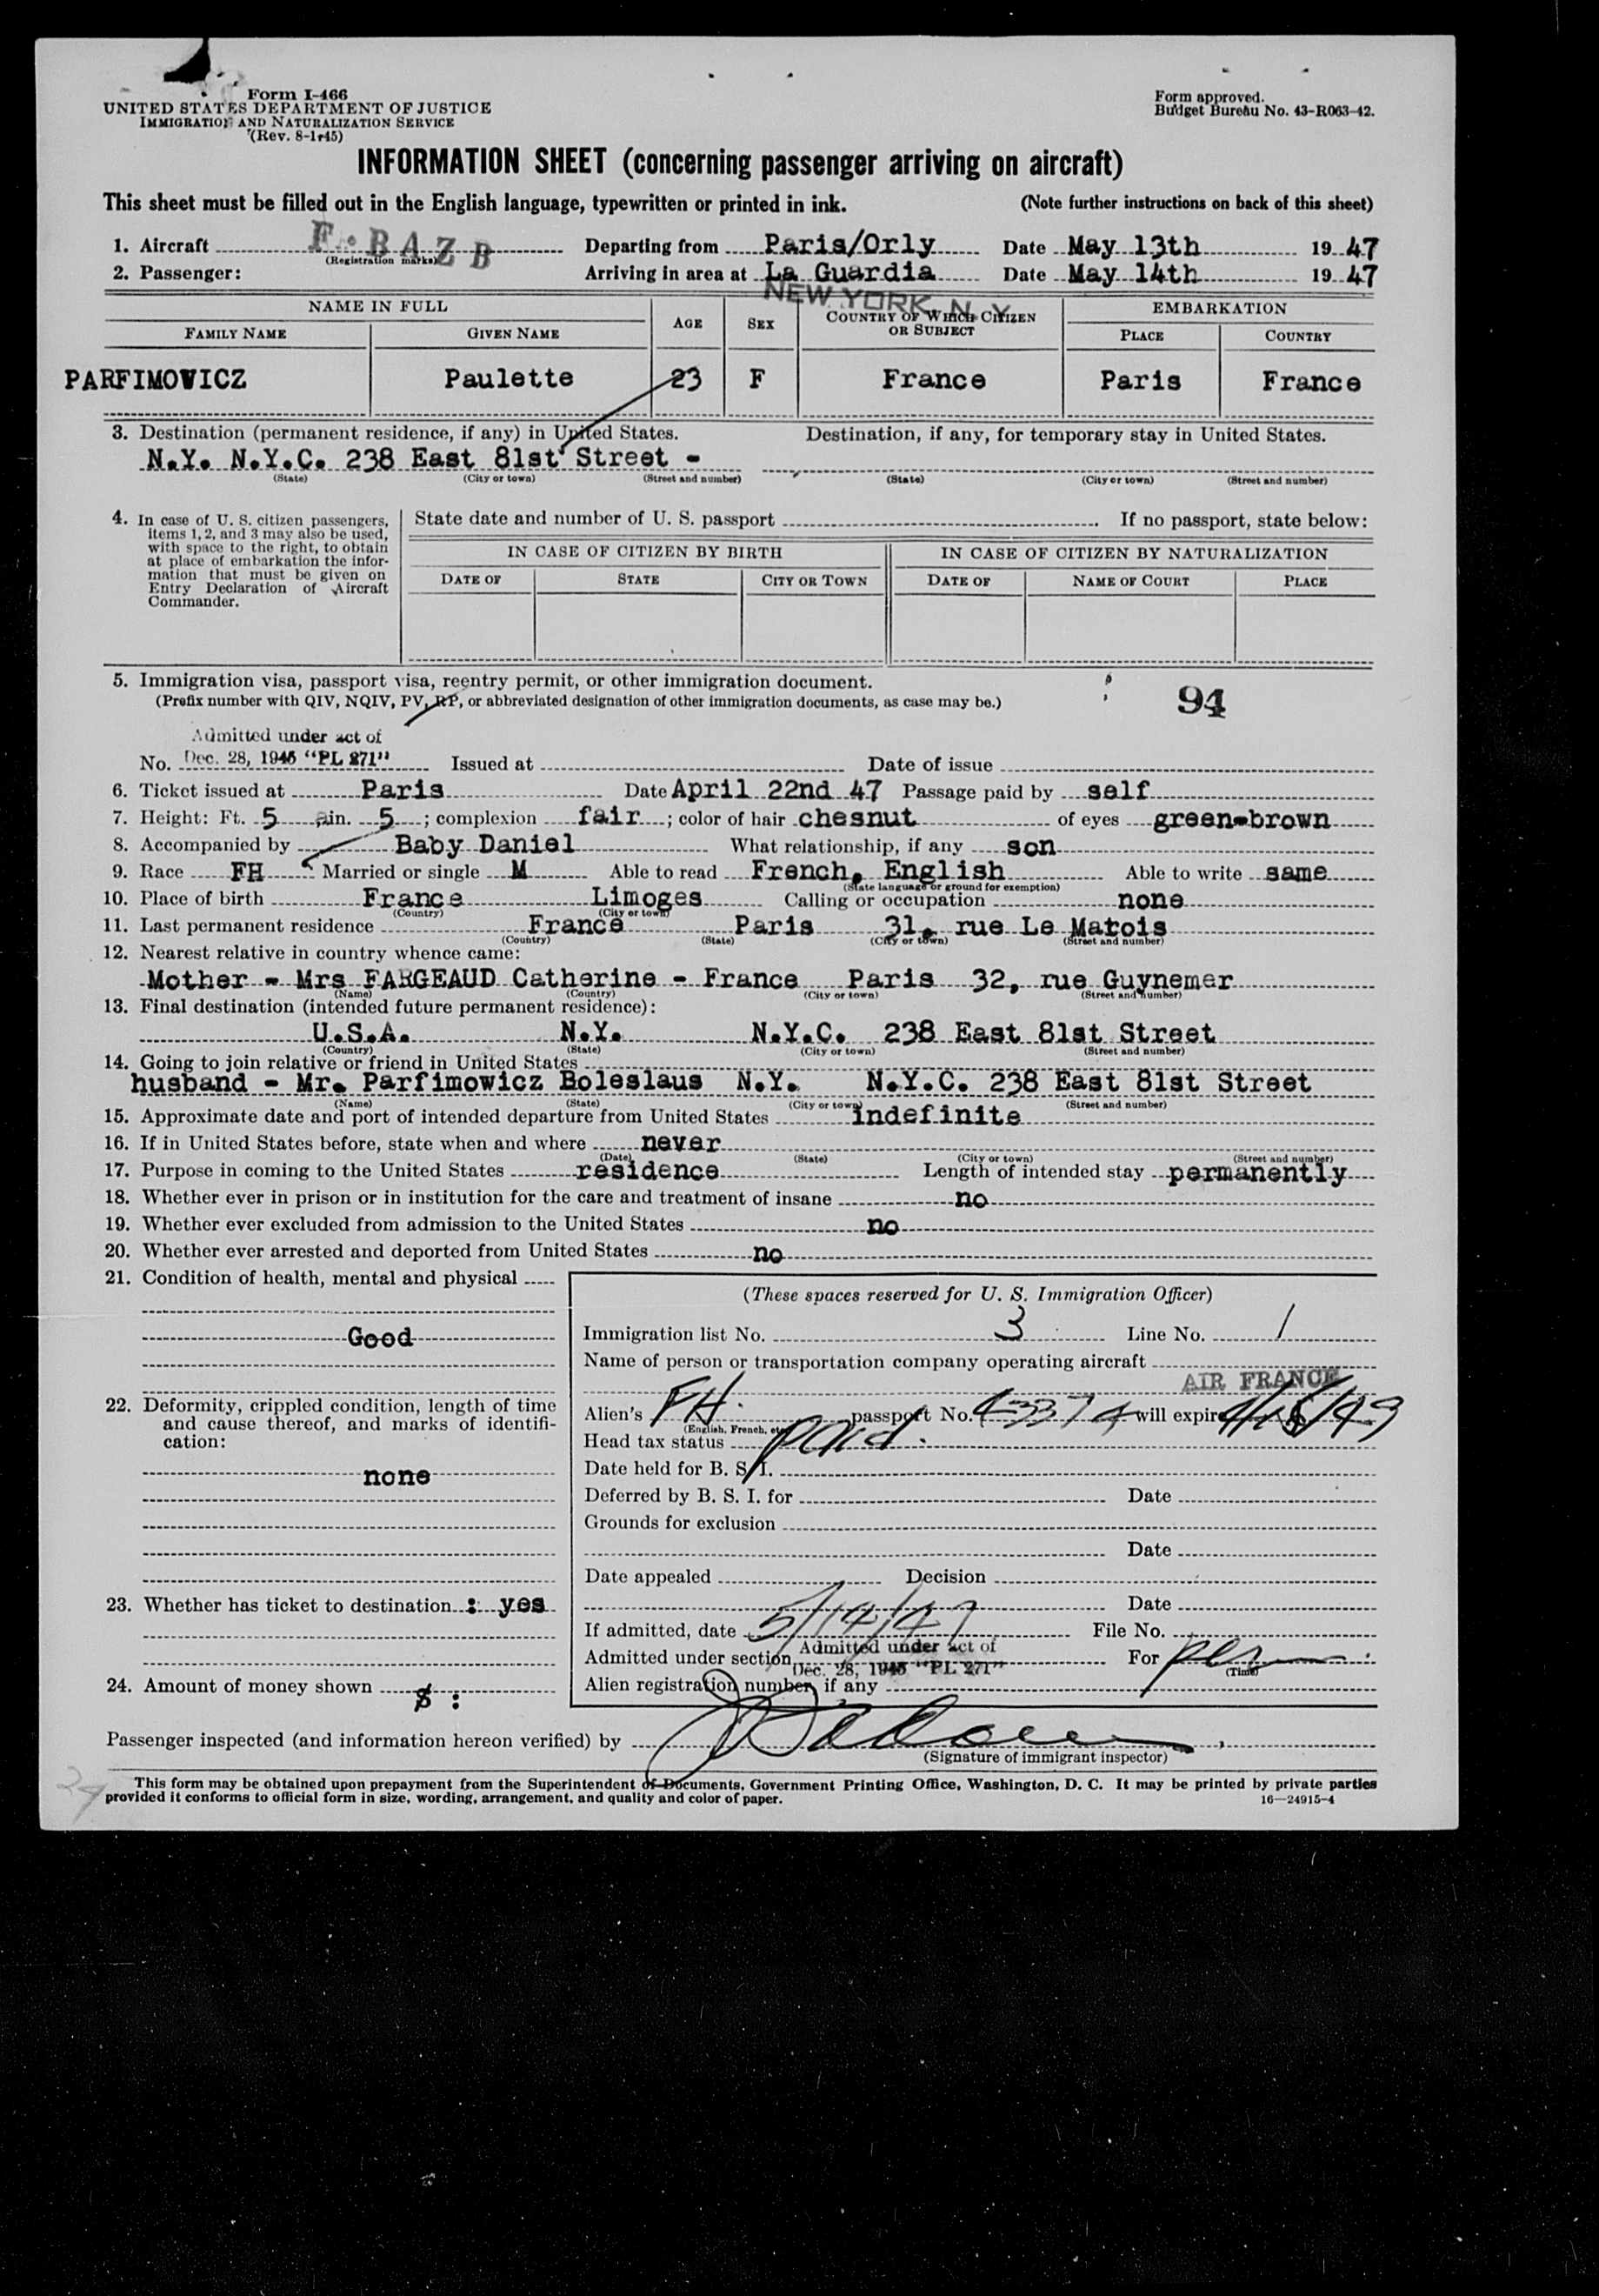 Form I-466
UNITED STATES DEPARTMENT OF JUSTICE
IMMIGRATION AND NATURALIZATION SERVICE
(Rev. 8-1-45)
Form approved.
Budget Bureau No. 43-R063-42.
INFORMATION SHEET (concerning passenger arriving on aircraft)
This sheet must be filled out in the English language, typewritten or printed in ink. (Note further instructions on back of this sheet)
1. Aircraft F-BAZB Departing from Paris/Orly Date May 13th 19 47
(Registration marks)
2. Passenger: Arriving in area at La Guardia Date May 14th 19 47
NEW YORK, N.Y.
NAME IN FULL AGE SEX COUNTRY OF WHICH CITIZEN OR SUBJECT EMBARKATION
FAMILY NAME GIVEN NAME PLACE COUNTRY
PARFIMOWICZ Paulette 23 F France Paris France
3. Destination (permanent residence, if any) in United States. Destination, if any, for temporary stay in United States.
N.Y. N.Y.C. 238 East 81st Street -
(State) (City or town) (Street and number) (State) (City or town) (Street and number)
4. In case of U. S. citizen passengers,
items 1, 2, and 3 may also be used,
with space to the right, to obtain
at place of embarkation the infor-
mation that must be given on
Entry Declaration of Aircraft
Commander.
State date and number of U. S. passport . If no passport, state below:
IN CASE OF CITIZEN BY BIRTH IN CASE OF CITIZEN BY NATURALIZATION
DATE OF STATE CITY OR TOWN DATE OF NAME OF COURT PLACE
5. Immigration visa, passport visa, reentry permit, or other immigration document.
(Prefix number with QIV, NQIV, PV, RP, or abbreviated designation of other immigration documents, as case may be.)
94
Admitted under act of
No. Dec. 28, 1945 "PL 271" Issued at Date of issue
6. Ticket issued at Paris Date April 22nd 47 Passage paid by self
7. Height: Ft. 5 in. 5 ; complexion fair ; color of hair chesnut of eyes green-brown
8. Accompanied by Baby Daniel What relationship, if any son
9. Race FH Married or single M Able to read French, English Able to write same
(State language or ground for exemption)
10. Place of birth France Limoges Calling or occupation none
(Country) (City or town)
11. Last permanent residence France Paris 31, rue Le Marois
(Country) (State) (City or town) (Street and number)
12. Nearest relative in country whence came:
Mother - Mrs FARGEAUD Catherine - France Paris 32, rue Guynemer
(Name) (Country) (City or town) (Street and number)
13. Final destination (intended future permanent residence):
U.S.A. N.Y. N.Y.C. 238 East 81st Street
(Country) (State) (City or town) (Street and number)
14. Going to join relative or friend in United States
husband - Mr. Parfimowicz Boleslaus N.Y. N.Y.C. 238 East 81st Street
(Name) (State) (City or town) (Street and number)
15. Approximate date and port of intended departure from United States indefinite
16. If in United States before, state when and where never
(Date) (State) (City or town) (Street and number)
17. Purpose in coming to the United States residence Length of intended stay permanently
18. Whether ever in prison or in institution for the care and treatment of insane no
19. Whether ever excluded from admission to the United States no
20. Whether ever arrested and deported from United States no
21. Condition of health, mental and physical
Good
22. Deformity, crippled condition, length of time
and cause thereof, and marks of identifi-
cation:
none
23. Whether has ticket to destination : yes
24. Amount of money shown $ :
(These spaces reserved for U. S. Immigration Officer)
Immigration list No. 3 Line No. 1
Name of person or transportation company operating aircraft
AIR FRANCE
Alien's FH. passport No. 43374 will expire
(English, French, etc.)
Head tax status paid.
Date held for B. S. I.
Deferred by B. S. I. for Date
Grounds for exclusion
Date
Date appealed Decision
Date
If admitted, date 5/14/47 File No.
Admitted under section Admitted under act of Dec. 28, 1945 "PL 271" For per
(Time)
Alien registration number, if any
Passenger inspected (and information hereon verified) by
(Signature of immigrant inspector)
This form may be obtained upon prepayment from the Superintendent of Documents, Government Printing Office, Washington, D. C. It may be printed by private parties
provided it conforms to official form in size, wording, arrangement, and quality and color of paper. 16—24915-4